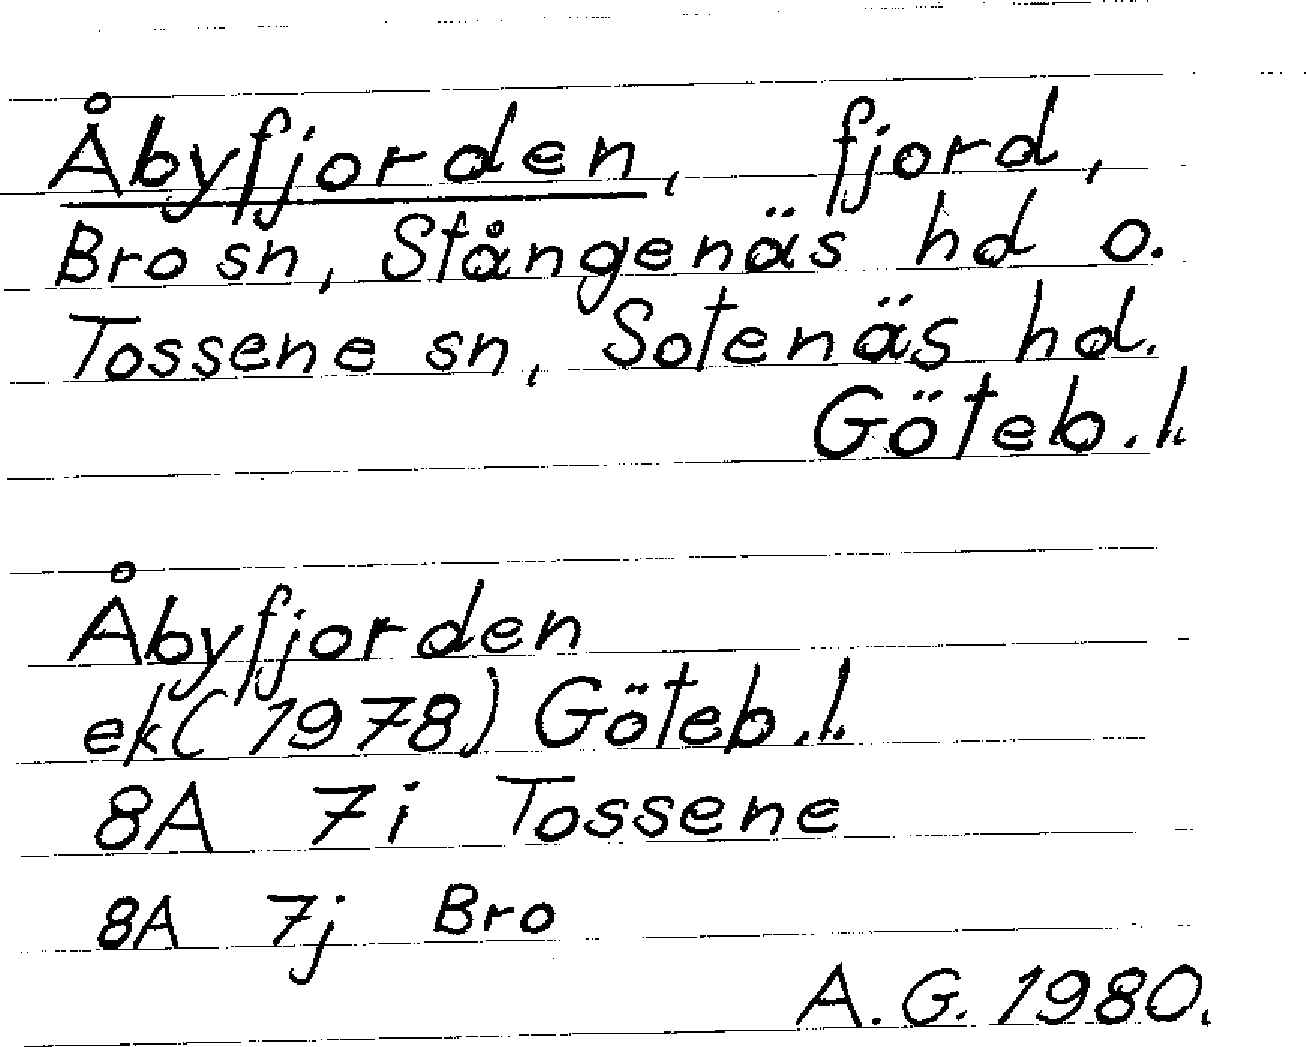 Åbyfjorden, fjord,
Bro sn, Stångenäs hd o.
Tossene sn, Sotenäs hd.
Göteb.l.
Åbyfjorden
ek(1978) Göteb.l.
8A 7i Tossene
8A 7j Bro
A.G. 1980.